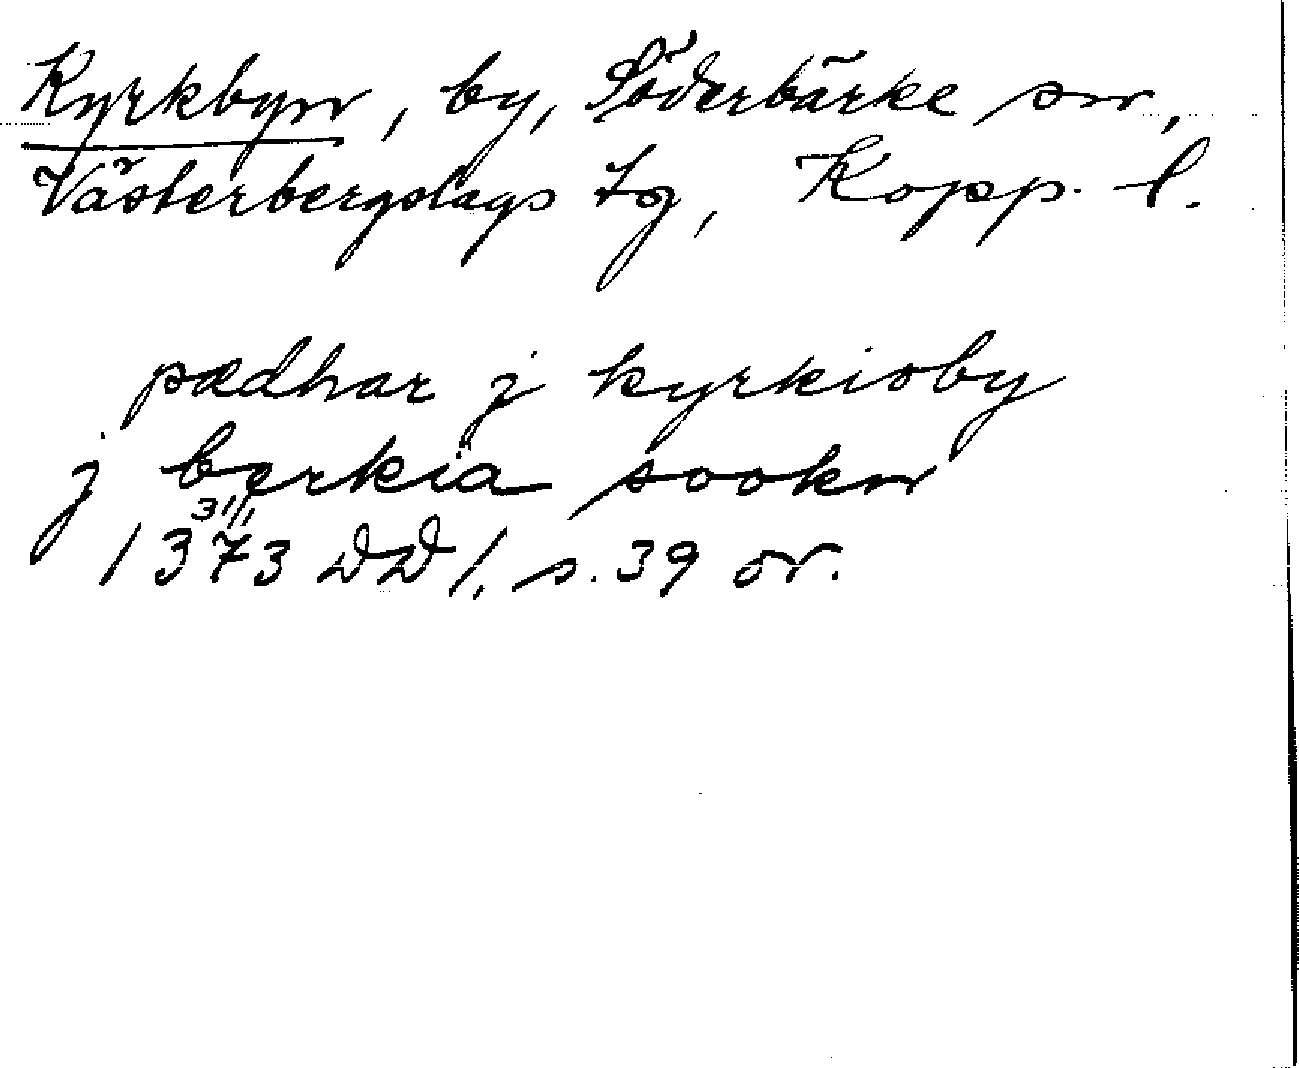 Kyrkbyn, by, Söderbärke sn,
Västerbergslags tg, Kopp. l.
pædhar j kyrkioby
j berkia sookn
31/1
1373 DD 1, s. 39 or.